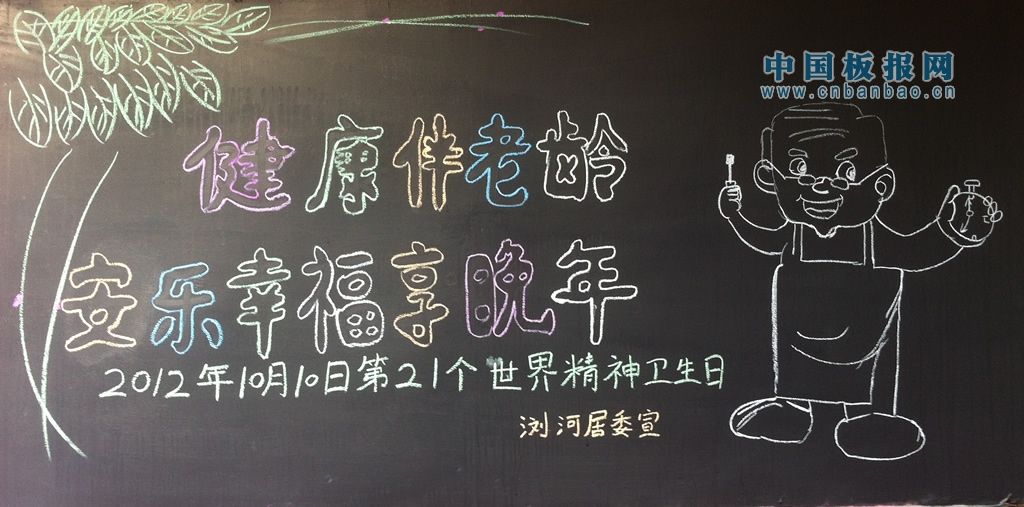 中国板报网
www.cnbanbao.cn
健康伴老龄
安乐幸福享晚年
2012年10月10日第21个世界精神卫生日
浏河居委宣